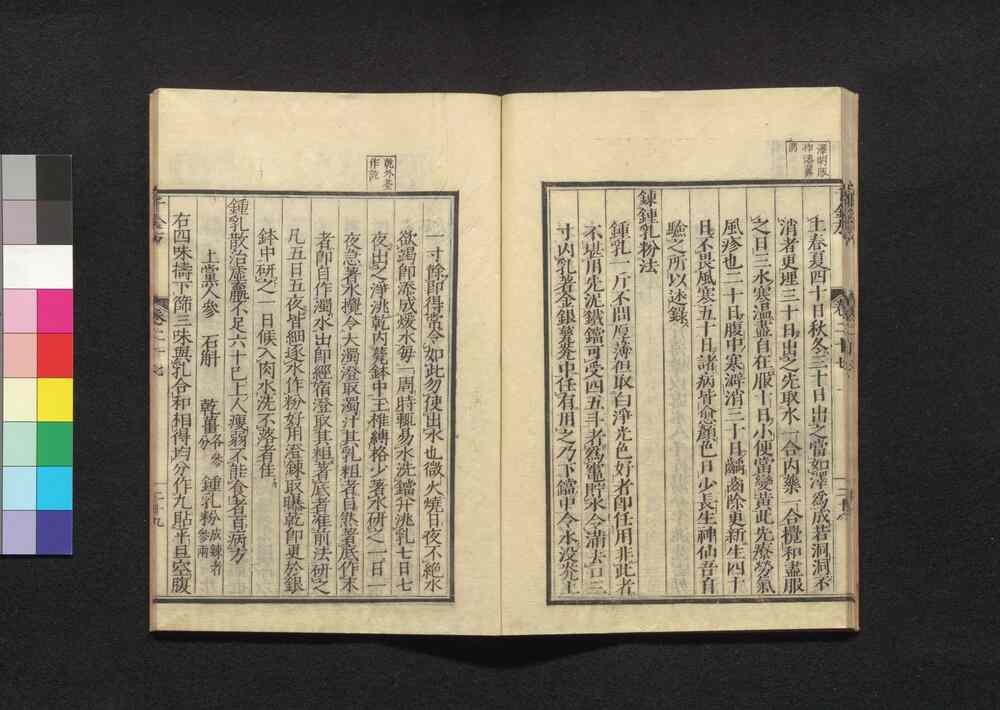 土春夏四十日秋冬三十日出之當如澤爲成若洞洞不
消者更埋三十日出之先取水一合內藥一合攪和盡服
之日三水寒溫盡自在服十日小便當變黃此先療勞氣
風疹也二十日腹中寒澼消三十日齲齒除更新生四十
日不畏風寒五十日諸病皆愈顏色日少長生神仙吾自
驗之所以述錄
鍊鍾乳粉法
鍾乳一斤不問厚薄但取白淨光色好者即任用非此者
不堪用先泥鐵鐺可受四五斗者爲竈貯水令滿去口三
寸內乳著金銀甆盎中任有用之乃下鐺中令水沒盎上
一寸餘即得常令如此勿使出水也微火燒日夜不絕水
欲竭即添成煖水每一周時輒易水洗鐺并洮乳七日七
夜出之淨洮乾內甆鉢中玉椎縛格少著水研之一日一
夜急著水攪令大濁澄取濁汁其乳粗者自然著底作末
者即自作濁水出即經宿澄取其粗著底者准前法研之
凡五日五夜皆細逐水作粉好用澄鍊取曝乾即更於銀
鉢中研之一日候入肉水洗不落者佳
鍾乳散治虛羸不足六十已上人瘦弱不能食者百病方
上黨人參 石斛 乾薑各參分 鍾乳粉成鍊者參兩
右四味擣下篩三味與乳合和相得均分作九貼平旦空腹
乾外臺
作訖